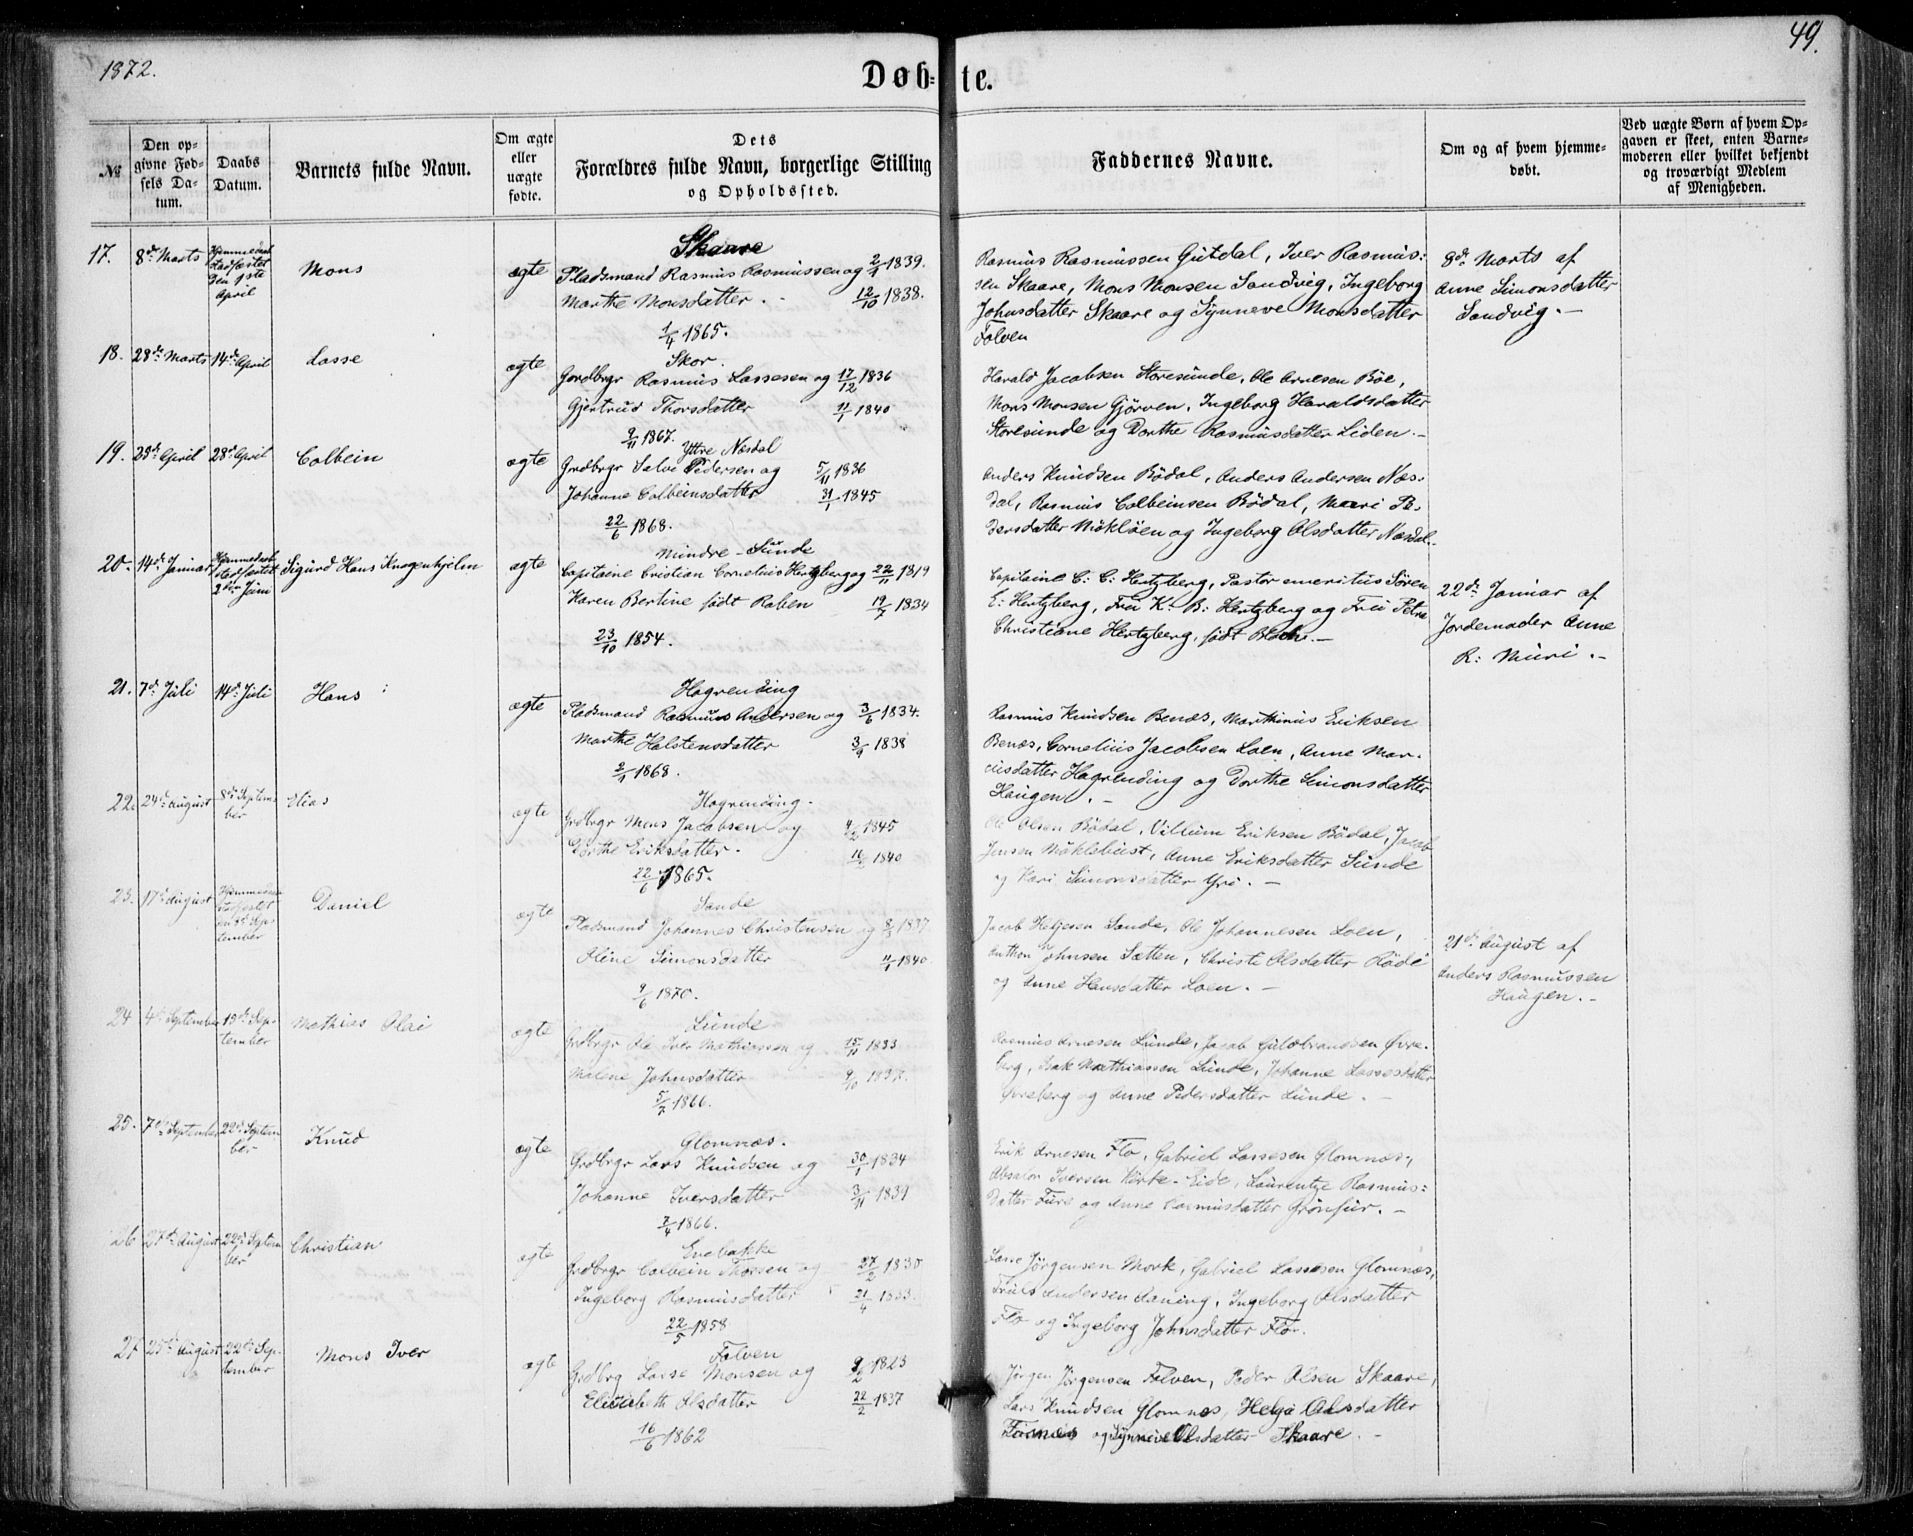 1872.
Døb=
te.
49.
№
Den op-
givne Fød-
sels Da-
tum.
Daabs
Datum.
Barnets fulde Navn.
Om ægte
eller
uægte
fødte.
Dets
Forældres fulde Navn, borgerlige Stilling
og Opholdssted.
Faddernes Navne.
Om og af hvem hjemme-
døbt.
Ved uægte Børn af hvem Op-
gaven er skeet, enten Barne-
moderen eller hvilket bekjendt
og troværdigt Medlem
af Menigheden.
17.
8de Marts
Hjemmedøbt
Stadfæstet
den 1ste
April
Mons
ægte
Skaare
Pladsmand Rasmus Rasmussen og 2/4 1839.
Marthe Monsdatter. 12/10 1838.
1/4 1865.
Rasmus Rasmussen Gutdal, Iver Rasmus:
sen Skaare, Mons Monsen Sandvig, Ingeborg
Johnsdatter Skaare og Synneve Monsdatter
Folven
8de Marts af
Anne Simonsdatter
Sandvig.
18.
28de Marts
14de April
Lasse
ægte
Skor.
Gordbrgr Rasmus Lassesen og 17/12 1836
Gjertrud Thorsdatter 11/1 1840
9/11 1867.
Harald Jacobsen Storesunde, Ole Arnesen Böe,
Mons Monsen Gjörven, Ingeborg Haraldsdatter
Storesunde og Dorthe Rasmusdatter Liden.
19.
April
28de April
Colbein
ægte
Yttre Næsdal
Grdbrgr Salve Pedersen og 5/11 1836
Johanne Colbeinsdatter 31/1 1845
22/6 1868.
Anders Knudsen Bödal, Anders Andersen Næs-
dal, Rasmus Colbeinsen Bödal, Mari Pe-
dersdatter Möklöen og Ingeborg Olsdatter Næsdal.
20.
14de Januar
Hjemmedøbt
stadfæstet
Juni
Sigurd Hans Knagenhjelm
ægte
Mindre-Sunde
Capitaine Cristian Cornelius Hertzberg og 22/11 1819
Karen Bertine født Raben 19/7 1834
23/10 1854.
Capitaine C: C: Hertzberg, Pastor emeritus Sören
E: Hertzberg, Fru K: B: Hertzberg og Fru Petra
Christiane Hertzberg, født
22de Januar af
Jordemoder Anne
R: Muri.
21.
7de Juli
14de Juli
Hans
ægte
Hogrending
Pladsmand Rasmus Andersen og 3/6 1834.
Marthe Halstensdatter 3/9 1838
2/1 1868.
Rasmus Knudsen Benæs, Marthinus Eriksen
Benæs, Cornelius Jacobsen Loen, Anne Mar-
cusdatter Hogrending og Dorthe Simonsdatter
Haugen.
22.
24de August
8de Septem-
ber
Elias
ægte
Hogrending.
Grdbrgr Mons Jacobsen og 1845
Dorthe Eriksdatter. 1840
22/6 1865.
Ole Olsen Bödal, Villum Eriksen Bödal, Jacob
Jensen Möklebust, Anne Eriksdatter Sunde
og Kari Simonsdatter Yri.
23.
17de August
Hjemmedøbt
stadfæstet
Sep-
tember
Daniel
ægte
Sande
Pladsmand Johannes Christensen og 8/3 1837.
Oline Simonsdatter 11/1 1840
9/6 1870.
Jacob Helgesen Sande, Ole Johannesen Loen,
Anthon Johnsen Sætten, Christi Olsdatter Rödi
og Anne Hansdatter Loen.
21de August af
Anders Rasmussen
Haugen.
24
4de September
15de Sep-
tember
Mathias Olai
ægte
Lunde
Grdbrgr Ole Iver Mathiassen og 15/11 1833
Malene Johnsdatter 9/10 1837.
5/7 1866.
Rasmus Arnesen Lunde, Jacob Guldbrandsen Øvre-
berg, Isak Mathiassen Lunde, Johanne Lassesdatter
Øvreberg og Anne Pedersdatter Lunde.
25.
7de September
22de Septem-
ber
Knud
ægte
Glomnæs.
Grdbrgr Lars Knudsen og 30/1 1834
Johanne Iversdatter 3/11 1839
7/4 1866.
Erik Arnesen Flo, Gabriel Lassesen Glomnæs,
Absalon Iversen Kirke-Eide, Laurentze Rasmus:
datter Fure og Anne Rasmusdatter Grönfur.
26
27de August
22de Septem-
ber
Christian
ægte
Enebakke
Grdbrgr Colbein Thorsen og 27/2 1830
Ingeborg Rasmusdatter 21/4 1833.
22/5 1858
Lasse Jörgensen Mork, Gabriel Lassesen Glomnæs,
Truls Andersen Aaning, Ingeborg Olsdatter
Flo og Ingeborg Johnsdatter Flo.
27
25de August
22de Sep-
tember
Mons Iver
ægte
Folven
Grdbrg Lasse Monsen og 9/2 1823
Elisabeth Olsdatter 22/2 1837
16/6 1862
Jörgen Jörgensen Folven, Peder Olsen Skaare,
Lars Knudsen Glomnes, Helga Olsdatter
og Synneve Olsdatter Skaare.